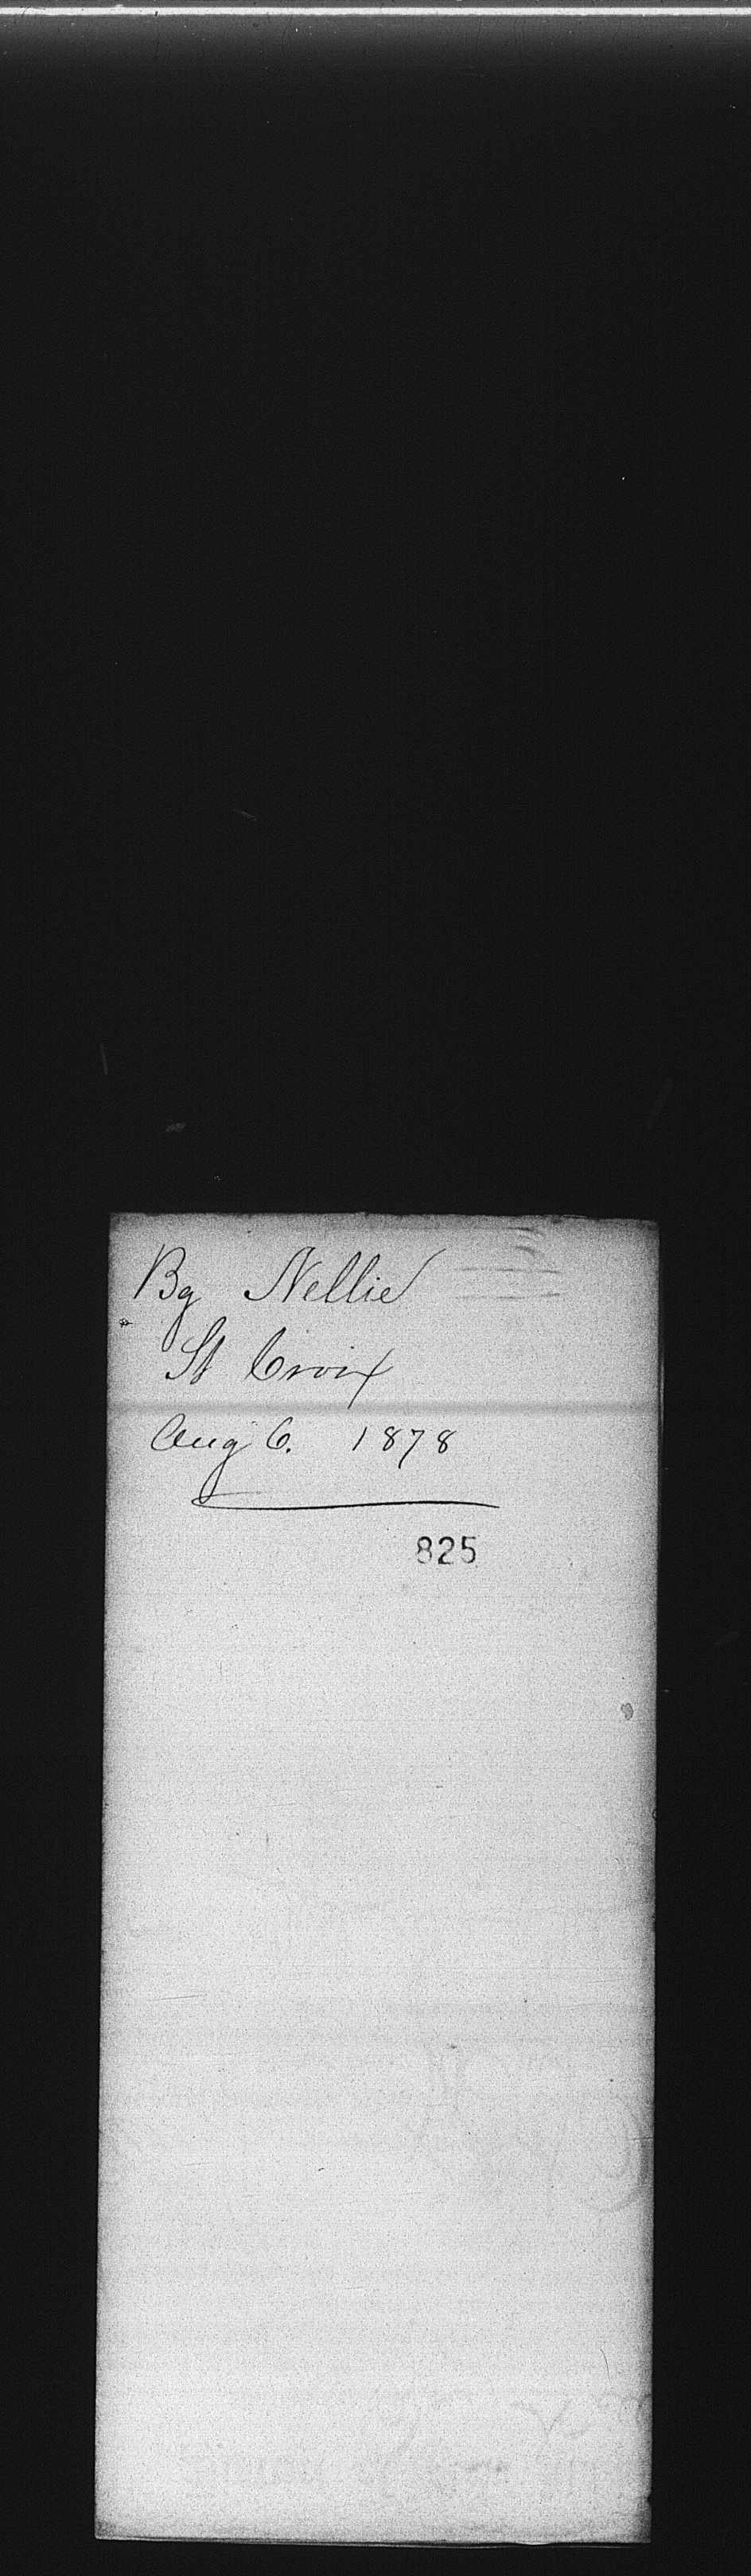 Bg Nellie
St Croix
Aug 6. 1878
825